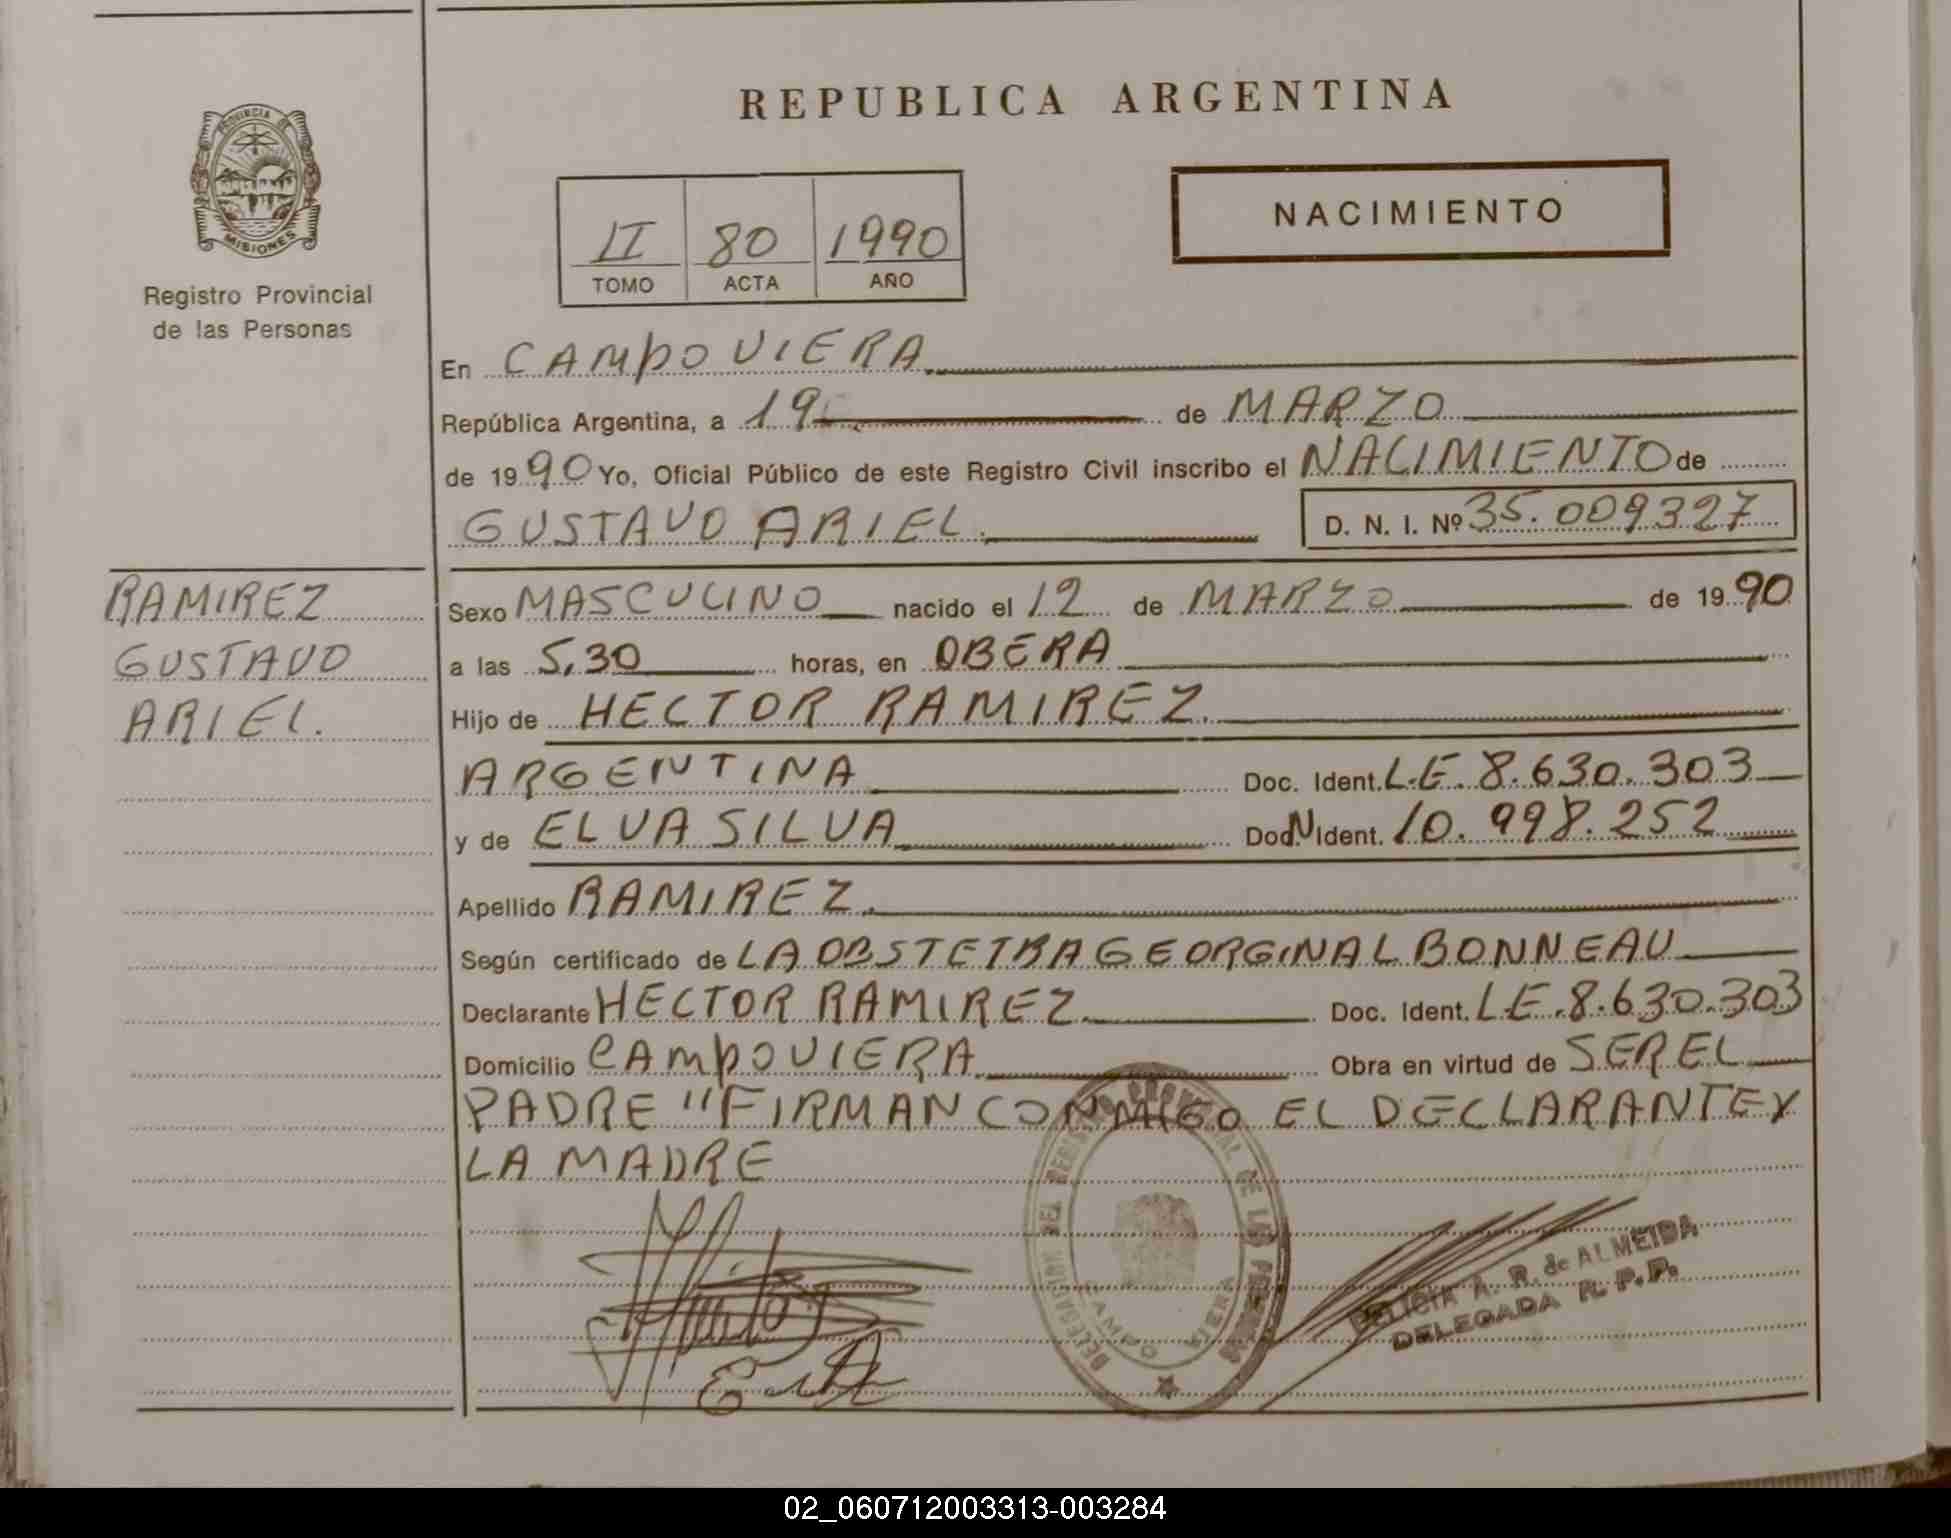 REPUBLICA ARGENTINA
PROVINCIA DE
MISIONES
Registro Provincial
de las Personas
II 80 1990
TOMO ACTA AÑO
NACIMIENTO
En CAMPO VIERA
República Argentina, a 19 de MARZO
de 1990 Yo, Oficial Público de este Registro Civil inscribo el NACIMIENTO de
GUSTAVO ARIEL. D. N. I. Nº 35.009327
RAMIREZ
GUSTAVO
ARIEL.
Sexo MASCULINO nacido el 12 de MARZO de 1990
a las 5,30 horas, en OBERA
Hijo de HECTOR RAMIREZ.
ARGENTINA Doc. Ident. L.E. 8.630.303
y de ELVA SILVA Doc. Ident. 10.998.252
Apellido RAMIREZ.
Según certificado de LA OBSTETRA GEORGINA L BONNEAU
Declarante HECTOR RAMIREZ Doc. Ident. L.E. 8.630.303
Domicilio CAMPO VIERA Obra en virtud de SER EL
PADRE "FIRMAN CONMIGO EL DECLARANTE Y
LA MADRE
DELEGACION DEL REGISTRO PROVINCIAL DE LAS PERSONAS
CAMPO VIERA
FELICIA A. R. de ALMEIDA
DELEGADA R. P. P.
02_060712003313-003284